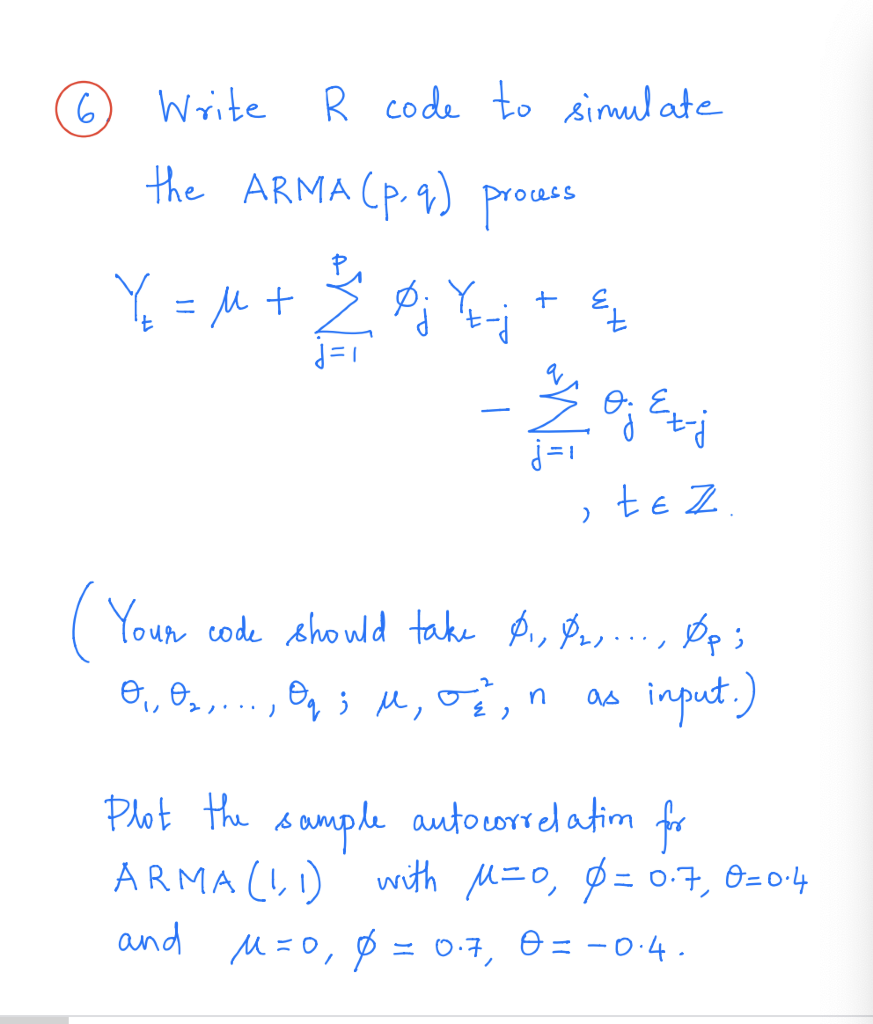 6 Write R code to simulate
the ARMA(p,q) process
Y_t = μ + Σ_{j=1}^{p} ϕ_j Y_{t-j} + ε_t
- Σ_{j=1}^{q} θ_j ε_{t-j}
, t ∈ ℤ.
(Your code should take ϕ_1, ϕ_2, ..., ϕ_p ;
θ_1, θ_2, ..., θ_q ; μ, σ_ε^2, n as input.)
Plot the sample autocorrelation for
ARMA(1,1) with μ=0, ϕ=0.7, θ=0.4
and μ=0, ϕ=0.7, θ=-0.4.